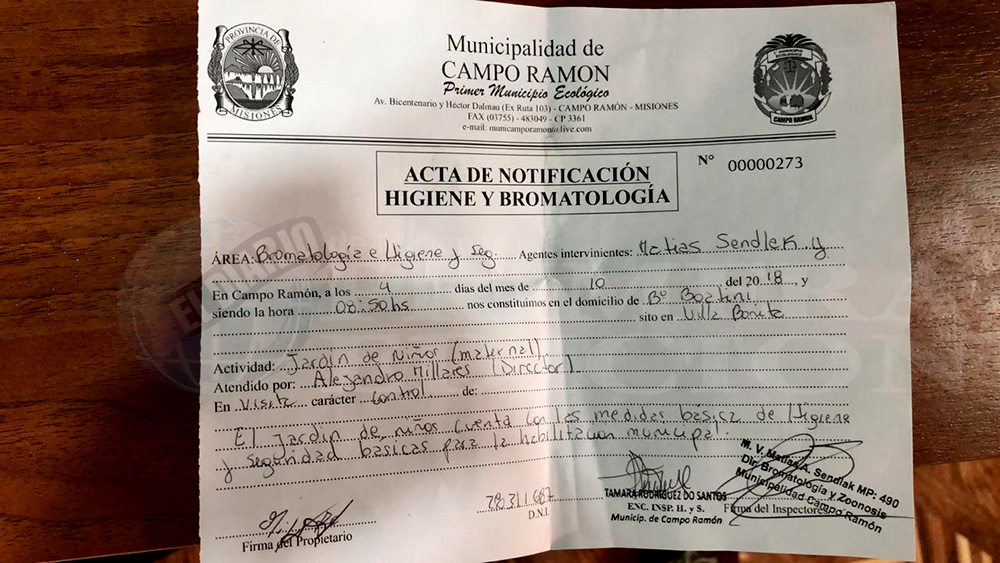 PROVINCIA DE
MISIONES
Municipalidad de
CAMPO RAMON
Primer Municipio Ecológico
Av. Bicentenario y Héctor Dalmau (Ex Ruta 103) - CAMPO RAMÓN - MISIONES
FAX (03755) - 483049 - CP 3361
e-mail: municamporamon@live.com
CAMPO RAMON
ACTA DE NOTIFICACIÓN
HIGIENE Y BROMATOLOGÍA
N° 00000273
ÁREA: Bromatología e Higiene y seg. Agentes intervinientes: Matias Sendlek y
En Campo Ramón, a los 4 días del mes de 10 del 2018, y
siendo la hora 08:50hs nos constituimos en el domicilio de B°
sito en Villa Bonita
Actividad: Jardin de Niños (maternal)
Atendido por: Alejandro Millares (Director)
En Visita carácter control de:
El Jardin de niños cuenta con las medidas básica de Higiene
y seguridad basicas para la habilitacion municipal.
Firma del Propietario
28.311.687
D.N.I.
TAMARA RODRIGUEZ DO SANTOS
ENC. INSP. H. y S.
Municip. de Campo Ramón
M. V. Matias A. Sendlak MP: 490
Dir. Bromatología y Zoonosis
Municipalidad Campo Ramón
Firma del Inspector
EL DIARIO